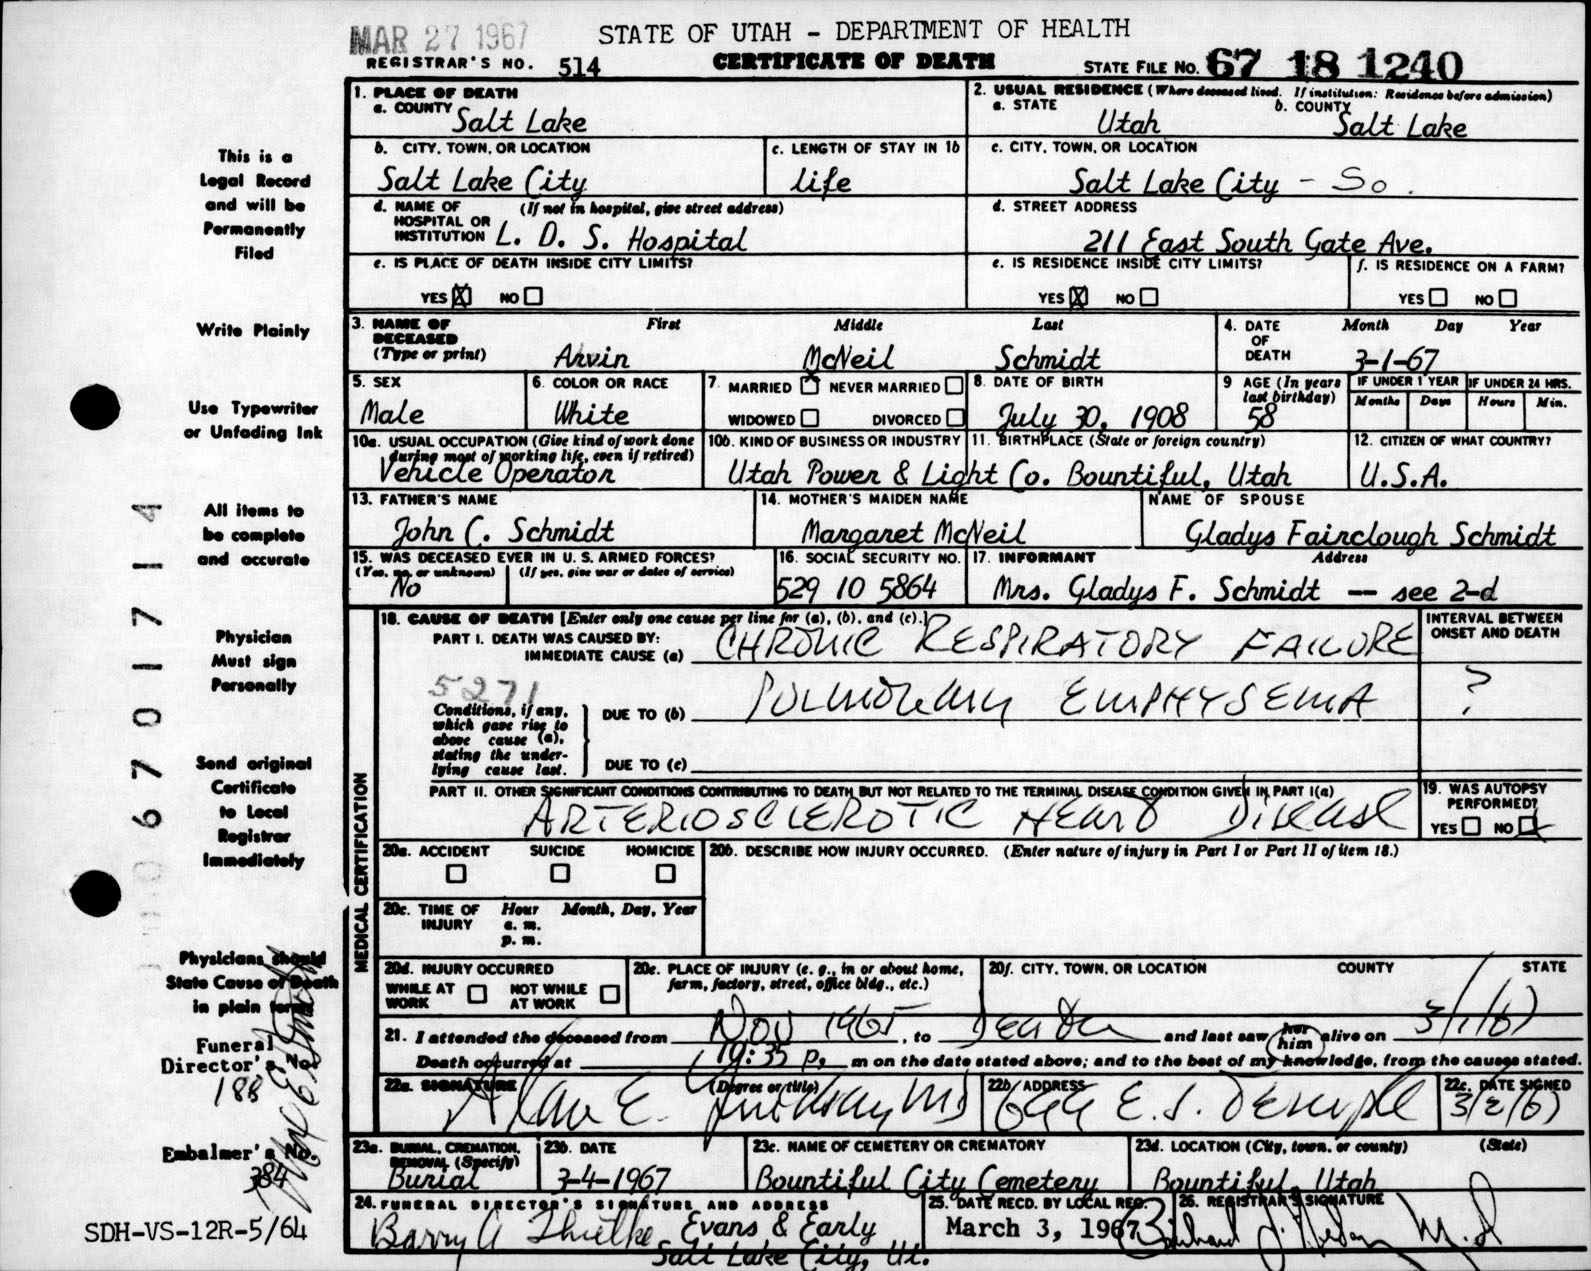 MAR 27 1967
STATE OF UTAH - DEPARTMENT OF HEALTH
REGISTRAR'S NO. 514
CERTIFICATE OF DEATH
STATE FILE NO. 67 18 1240
This is a
Legal Record
and will be
Permanently
Filed
Write Plainly
Use Typewriter
or Unfading Ink
All items to
be complete
and accurate
Physician
Must sign
Personally
Send original
Certificate
to Local
Registrar
Immediately
Physicians should
State Cause of Death
in plain terms
Funeral
Director's No.
188
Embalmer's No.
384
SDH-VS-12R-5/64
6701714
1. PLACE OF DEATH
a. COUNTY
Salt Lake
2. USUAL RESIDENCE (Where deceased lived. If institution: Residence before admission)
a. STATE
b. COUNTY
Utah
Salt Lake
b. CITY, TOWN, OR LOCATION
c. LENGTH OF STAY IN 1b
c. CITY, TOWN, OR LOCATION
Salt Lake City
life
Salt Lake City - So.
d. NAME OF HOSPITAL OR INSTITUTION
(If not in hospital, give street address)
L. D. S. Hospital
d. STREET ADDRESS
211 East South Gate Ave.
e. IS PLACE OF DEATH INSIDE CITY LIMITS?
YES X NO
e. IS RESIDENCE INSIDE CITY LIMITS?
YES X NO
f. IS RESIDENCE ON A FARM?
YES NO
3. NAME OF DECEASED
(Type or print)
First Middle Last
Arvin McNeil Schmidt
4. DATE OF DEATH
Month Day Year
3-1-67
5. SEX
Male
6. COLOR OR RACE
White
7. MARRIED X NEVER MARRIED
WIDOWED DIVORCED
8. DATE OF BIRTH
July 30, 1908
9 AGE (In years last birthday)
58
IF UNDER 1 YEAR
Months Days
IF UNDER 24 HRS.
Hours Min.
10a. USUAL OCCUPATION (Give kind of work done during most of working life, even if retired)
Vehicle Operator
10b. KIND OF BUSINESS OR INDUSTRY
Utah Power & Light Co.
11. BIRTHPLACE (State or foreign country)
Bountiful, Utah
12. CITIZEN OF WHAT COUNTRY?
U.S.A.
13. FATHER'S NAME
John C. Schmidt
14. MOTHER'S MAIDEN NAME
Margaret McNeil
NAME OF SPOUSE
Gladys Fairclough Schmidt
15. WAS DECEASED EVER IN U. S. ARMED FORCES?
(Yes, no, or unknown) (If yes, give war or dates of service)
No
16. SOCIAL SECURITY NO.
529 10 5864
17. INFORMANT Address
Mrs. Gladys F. Schmidt -- see 2-d
MEDICAL CERTIFICATION
18. CAUSE OF DEATH [Enter only one cause per line for (a), (b), and (c).]
PART I. DEATH WAS CAUSED BY:
IMMEDIATE CAUSE (a) CHRONIC RESPIRATORY FAILURE
INTERVAL BETWEEN ONSET AND DEATH
5271
Conditions, if any, which gave rise to above cause (a), stating the underlying cause last.
DUE TO (b) PULMONARY EMPHYSEMA
?
DUE TO (c)
PART II. OTHER SIGNIFICANT CONDITIONS CONTRIBUTING TO DEATH BUT NOT RELATED TO THE TERMINAL DISEASE CONDITION GIVEN IN PART I(a)
ARTERIOSCLEROTIC HEART DISEASE
19. WAS AUTOPSY PERFORMED?
YES NO X
20a. ACCIDENT SUICIDE HOMICIDE
20b. DESCRIBE HOW INJURY OCCURRED. (Enter nature of injury in Part I or Part II of item 18.)
20c. TIME OF INJURY
Hour Month, Day, Year
a. m.
p. m.
20d. INJURY OCCURRED
WHILE AT WORK NOT WHILE AT WORK
20e. PLACE OF INJURY (e. g., in or about home, farm, factory, street, office bldg., etc.)
20f. CITY, TOWN, OR LOCATION COUNTY STATE
21. I attended the deceased from Nov 1965, to Death and last saw her him alive on 3/1/67
Death occurred at 10:35 p. m on the date stated above; and to the best of my knowledge, from the causes stated.
22a. SIGNATURE (Degree or title)
Alan E. MD
22b. ADDRESS
E. S. Temple
22c. DATE SIGNED
3/2/67
23a. BURIAL, CREMATION, REMOVAL (Specify)
Burial
23b. DATE
3-4-1967
23c. NAME OF CEMETERY OR CREMATORY
Bountiful City Cemetery
23d. LOCATION (City, town, or county) (State)
Bountiful, Utah
24. FUNERAL DIRECTOR'S SIGNATURE AND ADDRESS
Barry A Evans & Early
Salt Lake City, Ut.
25. DATE RECD. BY LOCAL REG.
March 3, 1967
26. REGISTRAR'S SIGNATURE